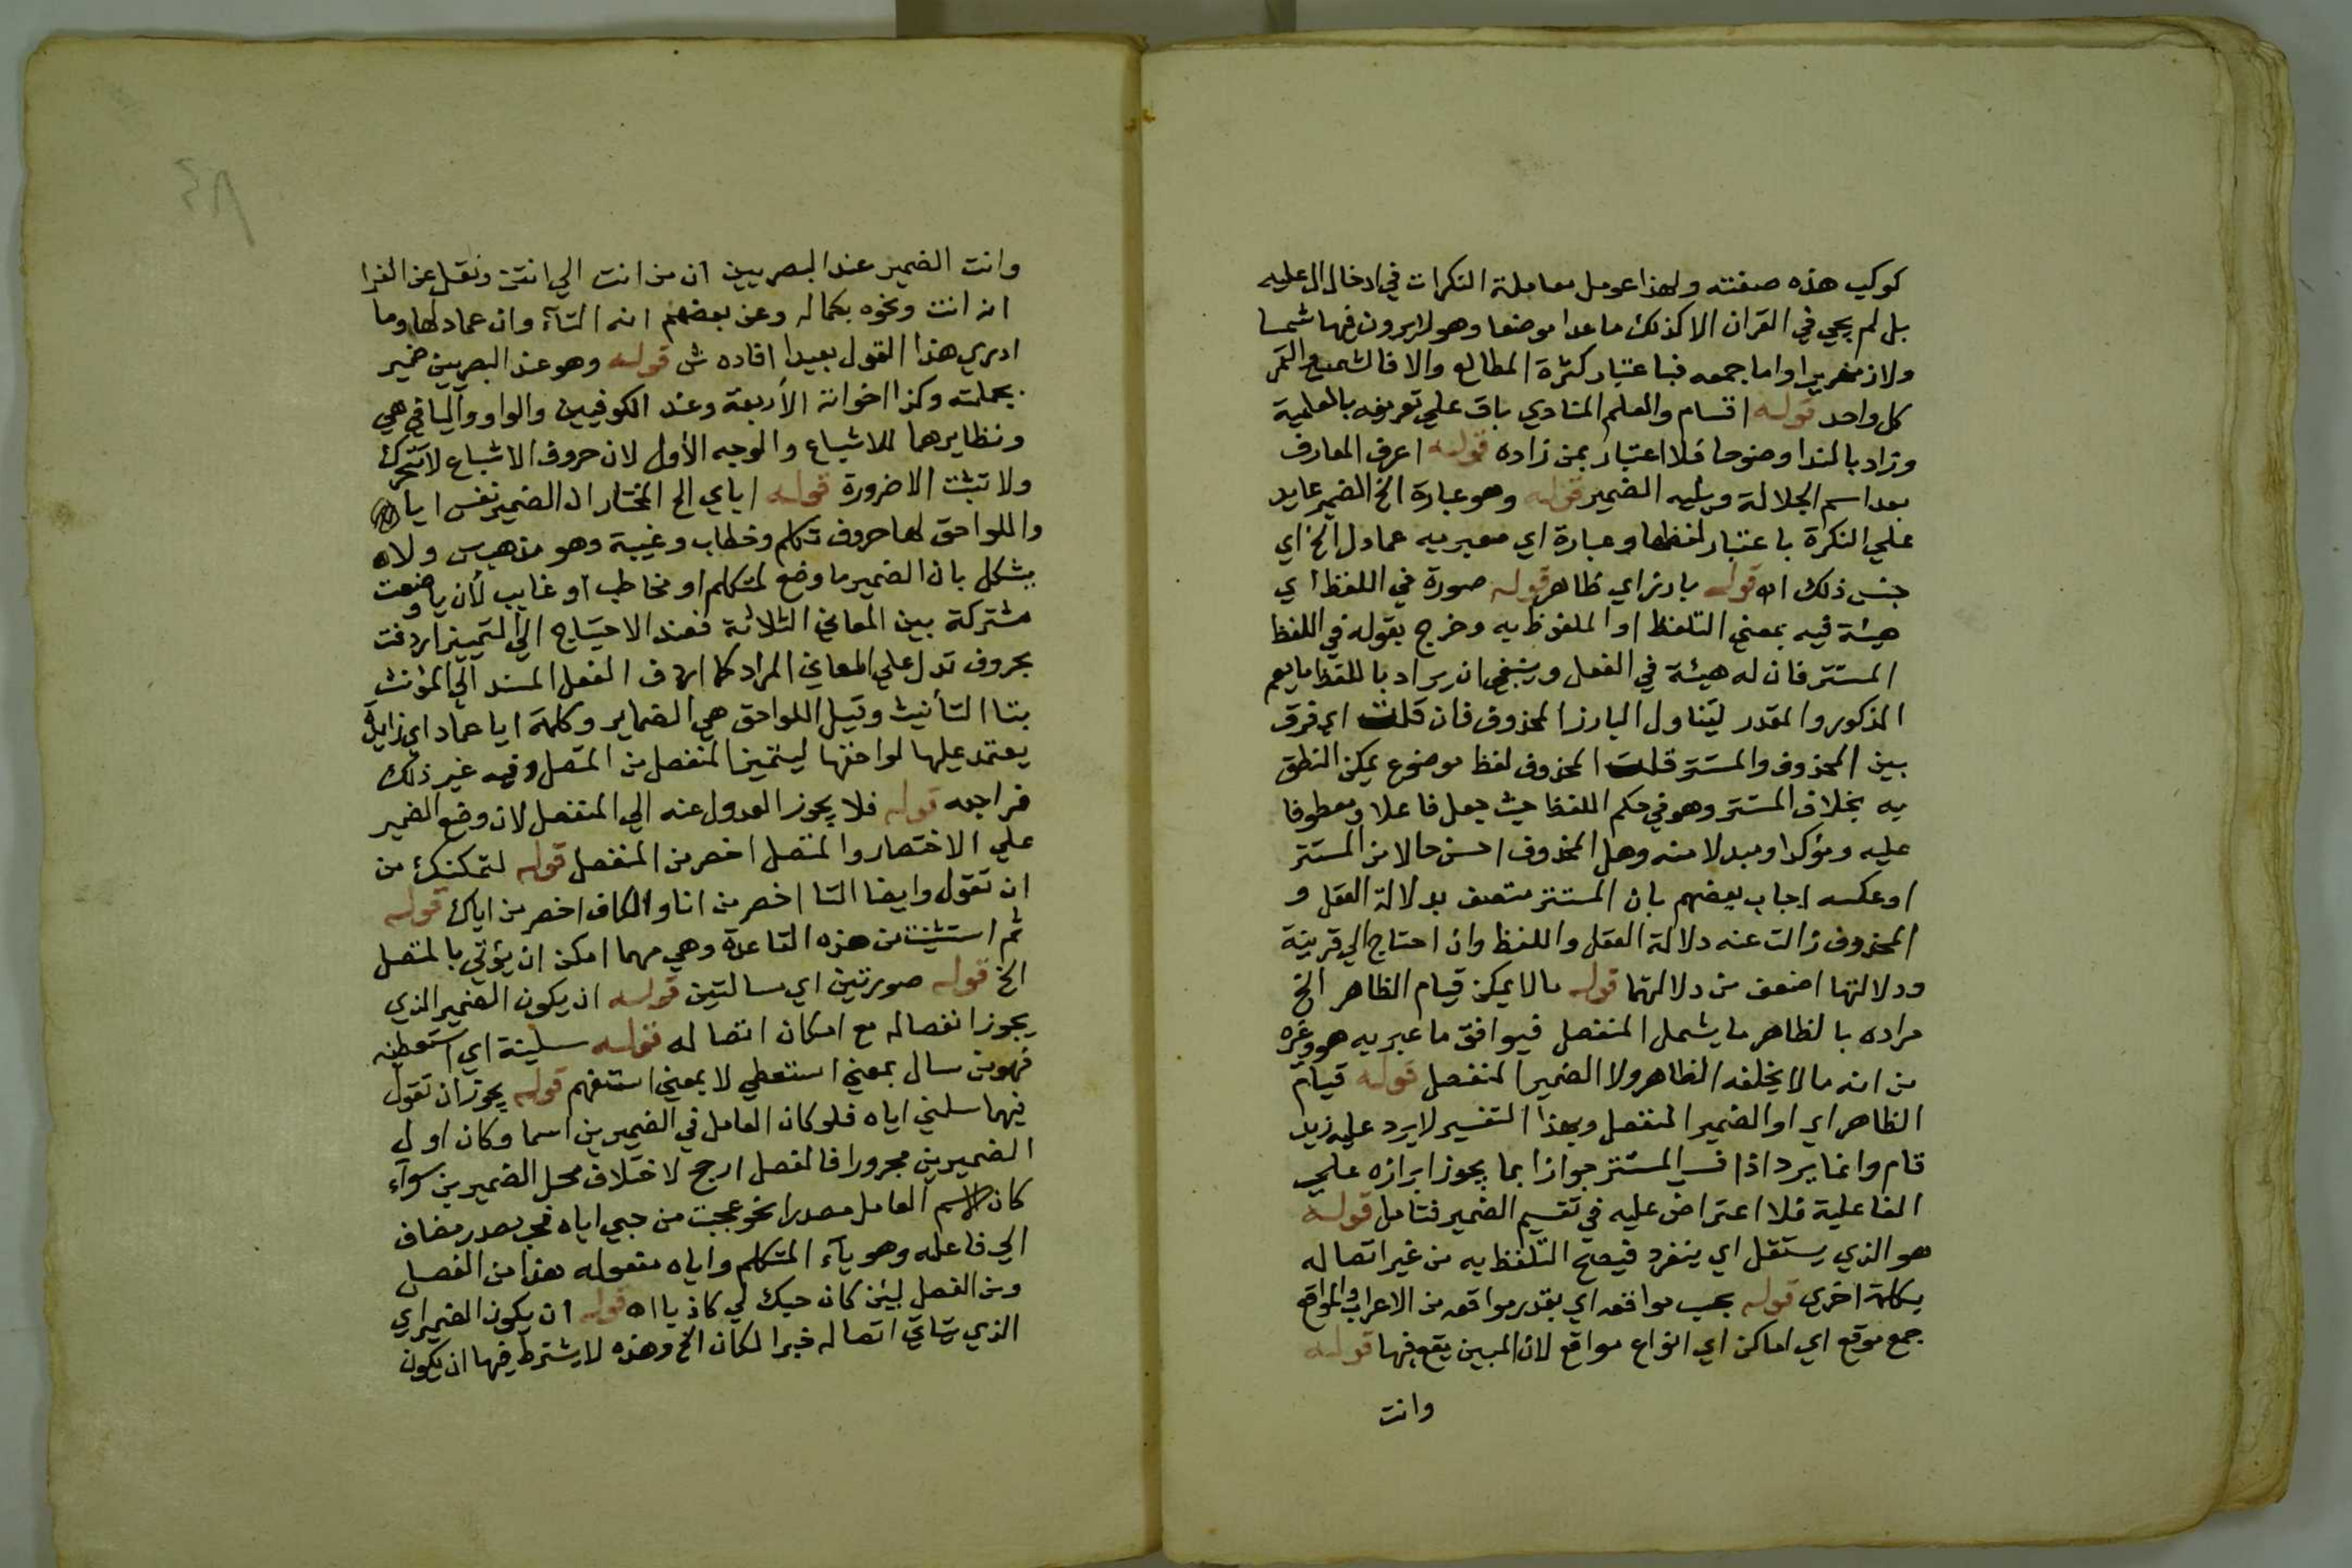 كوكب هذه صفته ولهذا عومل معاملة النكرات في ادخال ال عليه
بل لم يجي في القران الا كذلك ما عدا موضعا وهو لا يرون فيها شمسا
ولا زمهريرا واما جمعه فباعتبار كثرة المطالع والا فالشمس والقمر
كل واحد قوله اقسام والعلم المنادي باق علي تعريفه بالعلمية
وزاد بالندا وضوحا فلا اعتبار بمن زاده قوله اعرف المعارف
بعد اسم الجلالة ويليه الضمير قوله وهو عبارة الخ الضمير عايد
علي النكرة باعتبار لفظها وعبارة اي معبر به عما دل الخ اي
جنس ذلك اه قوله بارز اي ظاهر قوله صورة في اللفظ اي
هيئة فيه بمعني التلفظ او الملفوظ به وخرج بقوله في اللفظ
المستتر فان له هيئة في الفعل وينبغي ان يراد باللفظ ما يعم
المذكور والمقدر ليتناول البارز المحذوف فان قلت اي فرق
بين المحذوف والمستتر قلت المحذوف لفظ موضوع يمكن النطق
به بخلاف المستتر وهو في حكم اللفظ حيث جعل فاعلا ومعطوفا
عليه ومؤكدا ومبدلا منه وهل المحذوف احسن حالا من المستتر
او عكسه اجاب بعضهم بان المستتر متصف بدلالة العقل و
المحذوف زالت عنه دلالة العقل واللفظ وان احتاج الي قرينة
ودلالتها اضعف من دلالتهما قوله ما لا يمكن قيام الظاهر الخ
مراده بالظاهر ما يشمل المنفصل فيوافق ما عبر به هو وغيره
من انه ما لا يخلفه الظاهر ولا الضمير المنفصل قوله قيام
الظاهر اي او الضمير المنفصل وبهذا التفسير لا يرد عليه زيد
قام وانما يرد اذا فسر المستتر جوازا بما يجوز ابرازه علي
الفاعلية فلا اعتراض عليه في تقسيم الضمير فتامل قوله
هو الذي يستقل اي ينفرد فيصح التلفظ به من غير اتصاله
بكلمة اخري قوله بحسب مواقعه اي بقدر مواقعه من الاعراب والمواقع
جمع موقع اي اماكن اي انواع مواقع لان المبين يقع فيها قوله
وانت
وانت الضمير عند البصريين ان من انت الي انتن ونقل عن الفرا
ان انت ونحوه بكماله وعن بعضهم انه التآء وان عماد لها وما
ادري هذا القول بعيدا افاده ش قوله وهو عند البصريين ضمير
بجملته وكذا اخواته الأربعة وعند الكوفيين والواو واليا في هي
ونظايرهما للاشباع والوجه الأول لان حروف الاشباع لا تتحرك
ولا تثبت الا ضرورة قوله اياي الخ المختار ان الضمير نفس ايا
واللواحق لها حروف تكلم وخطاب وغيبة وهو مذهب س ولا
يشكل بان الضمير ما وضع لمتكلم او مخاطب او غايب لأن ايا وضعت
مشتركة بين المعاني الثلاثة فعند الاحتياج الي التمييز اردفت
بحروف تدل علي المعاني المراد كما اردف الفعل المسند الي المؤنث
بتا التأنيث وقيل اللواحق هي الضماير وكلمة ايا عماد اي زايدة
يعتمد عليها لواحقها ليتميز المنفصل من المتصل وفيه غير ذلك
فراجعه قوله فلا يجوز العدول عنه الي المنفصل لان وضع الضمير
علي الاختصار والمتصل اخصر من المنفصل قوله لتمكنك من
ان تقول وايضا التا اخصر من انا والكاف اخصر من اياك قوله
ثم استثنيت من هذه القاعدة وهي مهما امكن ان يؤتي بالمتصل
الخ قوله صورتين اي مسالتين قوله ان يكون الضمير الذي
يجوز انفصاله مع امكان اتصاله قوله سلنيه اي استعطيه
فهو من سال بمعني استعطي لا بمعني استفهم قوله يجوز ان تقول
فيهما سلني اياه فلو كان العامل في الضميرين اسما وكان اول
الضميرين مجرورا فالفصل ارجح لاختلاف محل الضميرين سوآء
كان الاسم العامل مصدرا نحو عجبت من حبي اياه فحب مصدر مضاف
الي فاعله وهو يآء المتكلم واياه مفعوله هذا من الفصل
ومن الفصل لئن كان حبك لي كاذبا اه قوله ان يكون الضمير اي
الذي يتاتي اتصاله خبرا لكان الخ وهذه لا يشترط فيها ان يكون